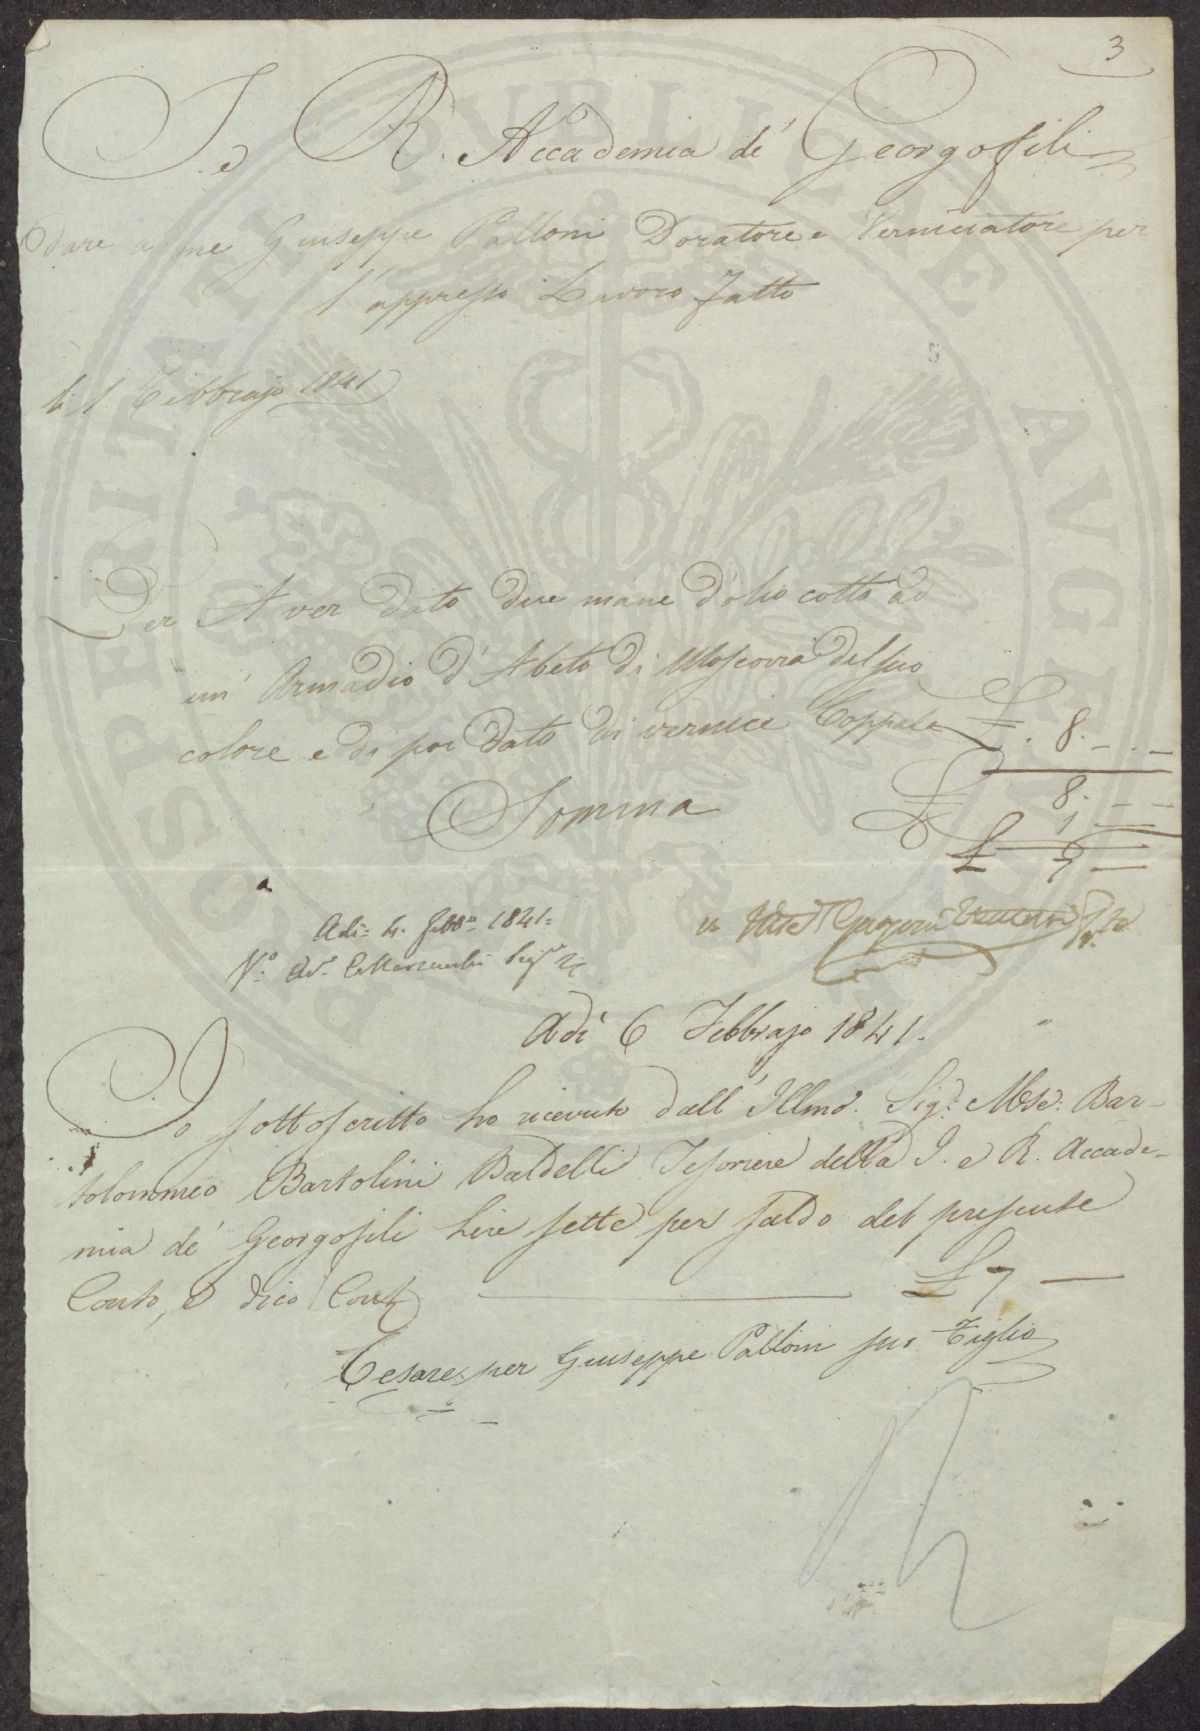 3
I. e R. Accademia de' Georgofili
Dare a me Giuseppe Palloni Doratore e Verniciatore per
l'appresso Lavoro Fatto
li 1 Febbrajo 1841
Per Aver dato due mane d'olio cotto ad
un' Armadio d'Abeto di Moscovia del suo
colore e di poi dato di vernice Coppale £. 8. - . -
8. - -
Somma
1 - -
£ 7 -
Adi= 4. Febb.o 1841=
Adì 6 Febbrajo 1841.
Io sottoscritto ho ricevuto dall' Illmo. Sig.r Mse: Bar-
tolommeo Bartolini Baldelli Tesoriere della I. e R. Accade-
mia de' Georgofili Lire sette per saldo del presente
Conto, e dico Cont £ 7 —
Cesare per Giuseppe Palloni suo Figlio
PROSPERITATI PUBLICAE AUGENDAE